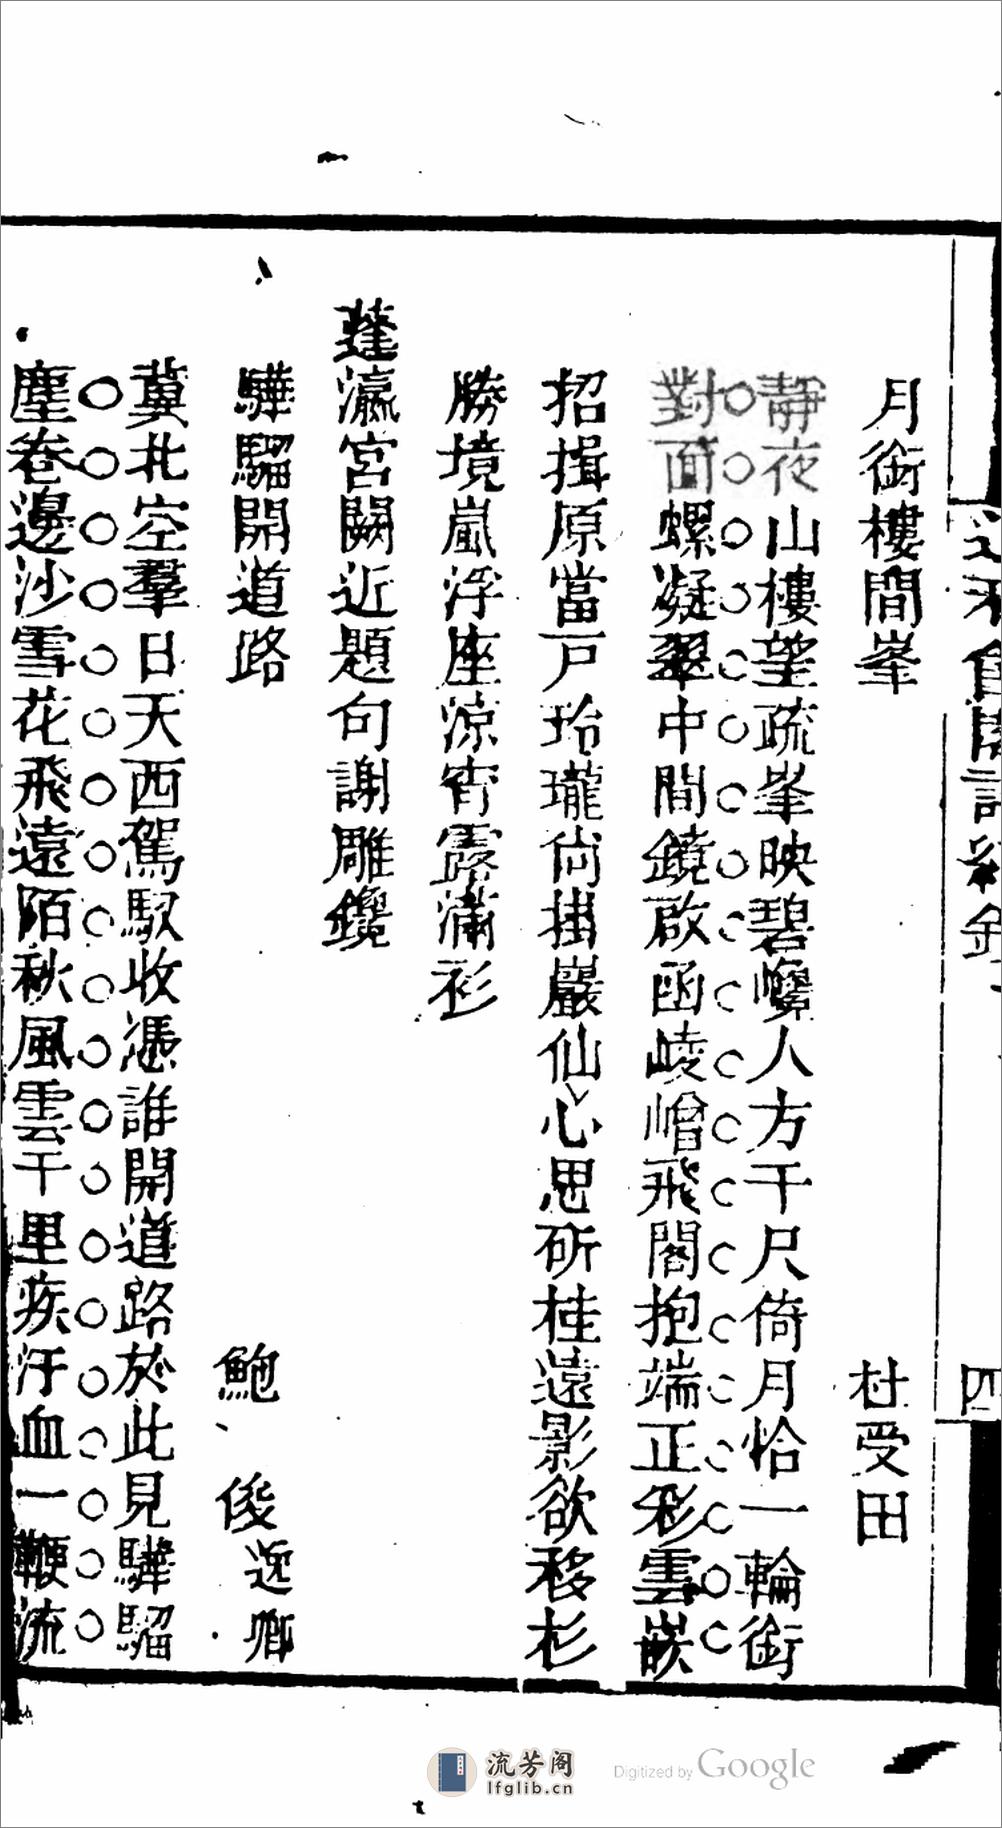 月銜樓間峯
杜受田
靜夜山樓望疏峯映碧巉人方千尺倚月恰一輪銜
對面螺凝翠中間鏡啟函崚嶒飛閣抱端正彩雲嵌
招揖原當戸玲瓏尚掛巖仙心思斫桂遠影欲移杉
勝境嵐浮座涼宵露滿衫
蓬瀛宮闕近題句謝雕鑱
驊騮開道路
鮑俊逸卿
冀北空羣日天西駕馭收憑誰開道路於此見驊騮
塵卷邊沙雪花飛遠陌秋風雲千里疾汗血一鞭流
四
流芳阁
lfglib.cn
Digitized by Google